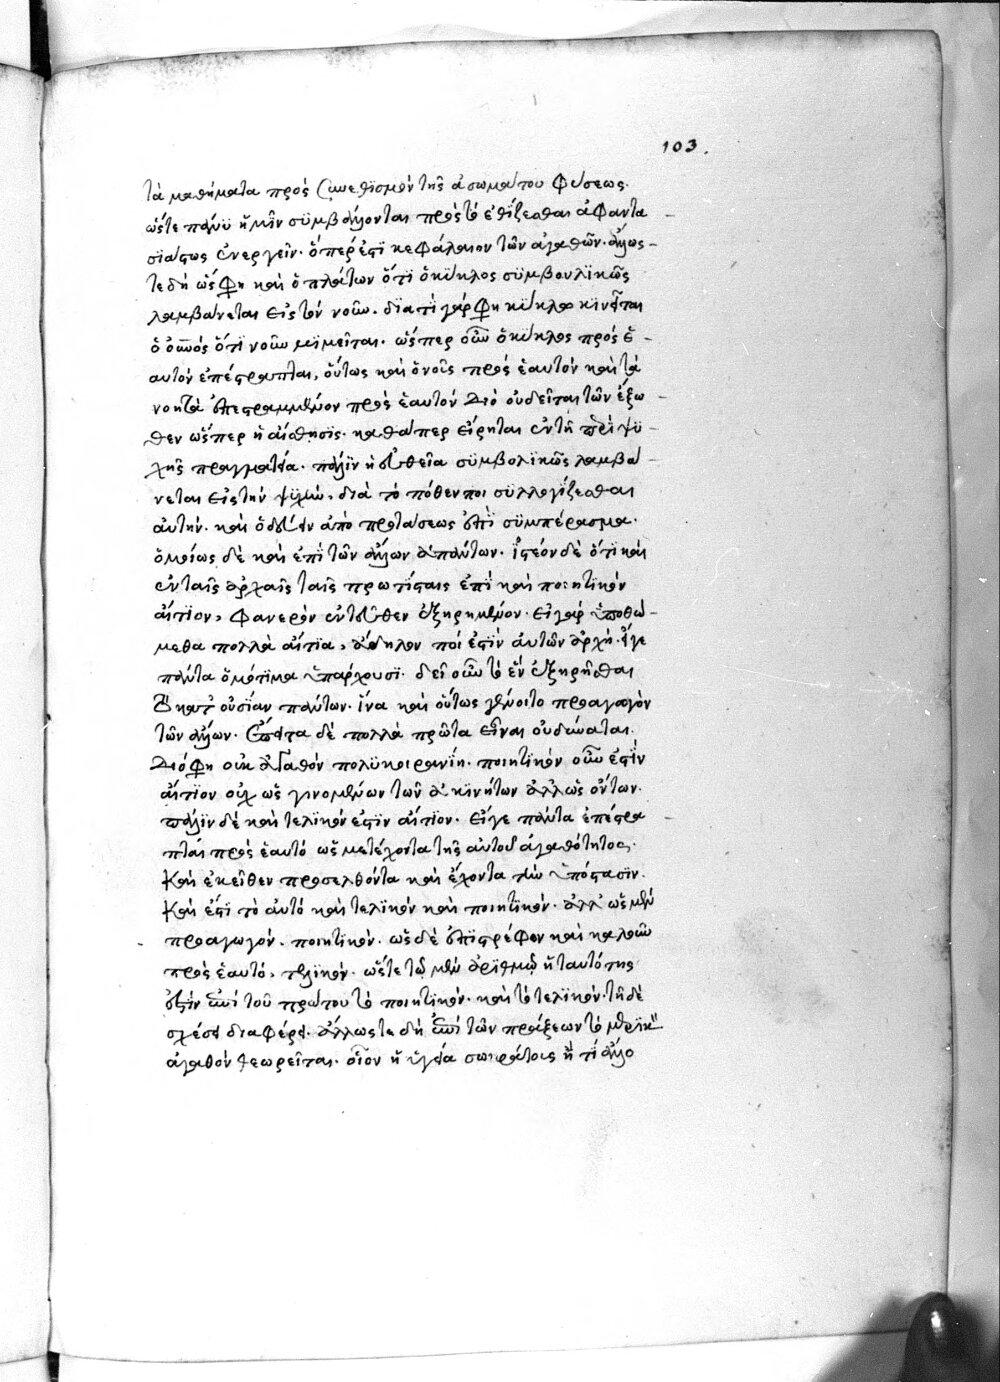 103.
τὰ μαθήματα πρὸς συνεθϊσμὸν τῆς ἀσωμάτου φύσεως.
ὥστε πάνϋ ἡμῖν σϋμβάλλονται πρὸς τὸ ἐθίζεσθαι ἀφαντα
σϊάστως ἐνεργεῖν. ὅπερ ἐστὶ κεφάλαιον τῶν ἀγαθῶν. ἄλλως
τε δὴ ὥς φη καὶ ὁ πλάτων ὅτϊ ὁ κύκλος σϋμβουλϊκῶς
λαμβάνεται εἰς τὸν νοῦν. διατί γάρ φη κύκλῳ κινεῖται
ὁ οὐνός ὅτϊ νοῦν μϊμεῖται. ὥσπερ οὖν ὁ κύκλος πρὸς ἑ
αυτὸν ἐπέστραπται, οὕτως καὶ ὁ νοῦς πρὸς ἑαυτὸν καὶ τὰ
νοητὰ ἐπεστραμμένον πρὸς ἑαυτὸν Διὸ οὐδεῖται τῶν ἔξω
θεν ὥσπερ ἡ αἴσθησϊς. καθάπερ εἴρηται ἐν τῇ περὶ ψυ
χῆς πραγματεία. πάλϊν ἡ εὐθεῖα σϋμβολϊκῶς λαμβά
νεται εἰς τὴν ψϋχὴν, διὰ τὸ πόθεν ποι σϋλλογίζεσθαι
αὐτὴν. καὶ ὁδεύειν ἀπὸ προτάσεως ἐπὶ σϋμπέρασμα.
ὁμοίως δὲ καὶ ἐπὶ τῶν ἄλλων ἁπάντων. ἰστέον δὲ ὅτϊ καὶ
ἐν ταῖς ἀρχαῖς ταῖς πρωτίσταις ἐστὶ καὶ ποιητϊκὸν
αἴτϊον, φανερὸν ἐντεῦθεν ἐξῃρημένον. εἰ γὰρ ὑποθώ
μεθα πολλὰ αἴτϊα, ἄδηλον ποῖ ἐστϊν αὐτῶν ἀρχή. εἴγε
πάντα ὁμότϊμα ὑπάρχουσϊ. δεῖ οὖν τὸ ἓν ἐξῃρῆσθαι
κατ' οὐσίαν πάντων. ἵνα καὶ οὕτως γένοιτο προαγωγὸν
τῶν ἄλλων. ἔπειτα δὲ πολλὰ πρῶτα εἶναι οὐδύναται.
Διό φη οὐκ ἀγαθὸν πολϋκοιρανίη. ποιητϊκὸν οὖν ἐστϊν
αἴτϊον οὐχ ὡς γινομένων τῶν ἀκινήτων ἀλλ' ὡς ὄντων.
πάλϊν δὲ καὶ τελϊκόν ἐστϊν αἴτϊον. εἴγε πάντα ἐπέστρα
πται πρὸς ἑαυτὸ ὡς μετέχοντα τῆς αὐτοῦ ἀγαθότητος.
καὶ ἐκεῖθεν προσελθόντα καὶ ἔχοντα τὴν ὑπόστασϊν.
καὶ ἐστὶ τὸ αὐτὸ καὶ τελϊκὸν καὶ ποιητϊκὸν. ἀλλ' ὡς μὲν
προαγωγὸν, ποιητϊκὸν. ὡς δὲ ἐπϊστρέφον καὶ καλοῦν
πρὸς ἑαυτὸ, τελϊκὸν. ὥστε τῷ μὲν ἀρϊθμῷ ἡ ταυτότης
ἐστὶν ἐπὶ τοῦ πρώτου τὸ ποιητϊκὸν. καὶ τὸ τελϊκὸν. τῇ δὲ
σχέσει διαφέρει. ἄλλως τε δὴ ἐπὶ τῶν πράξεων τὸ μερϊκὸν
ἀγαθὸν θεωρεῖται. οἷον ἡ ὑγεία σωκράτοις ἤ τϊ ἄλλο